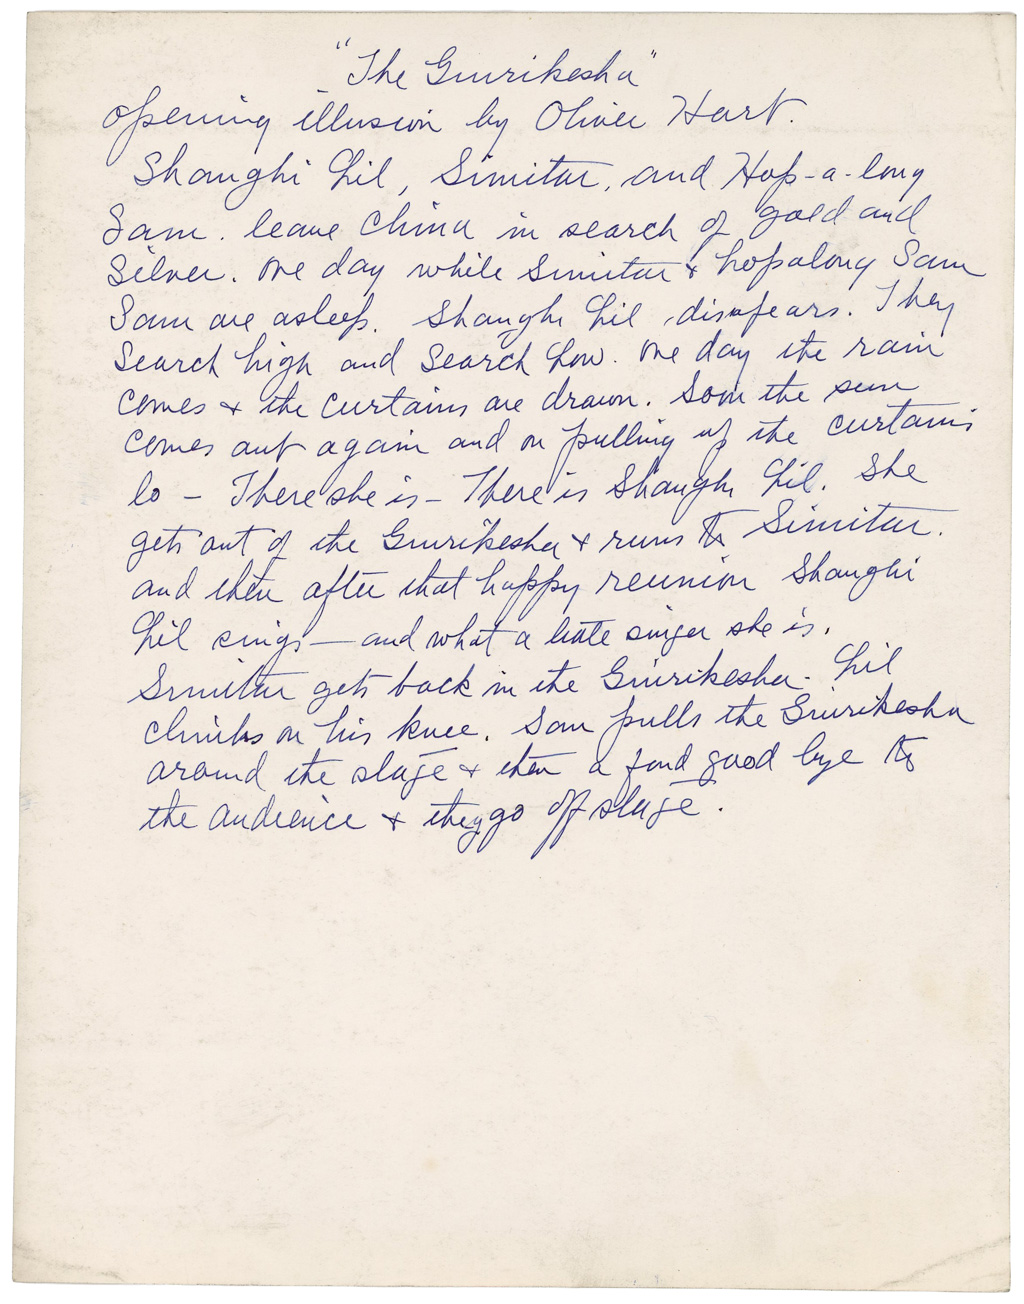 "The Ginrikesha"
opening illusion by Oliver Hart.
Shanghi Lil, Simitar, and Hop-a-long
Sam. leave China in search of gold and
Silver. One day while Simitar & hopalong Sam
Sam are asleep. Shanghi Lil disapears. They
Search high and Search Low. One day the rain
comes & the curtains are drawn. Soon the sun
comes out again and on pulling up the curtains
lo - There she is - There is Shanghi Lil. She
gets out of the Ginrikesha & runs to Simitar.
and then after that happy reunion Shanghi
Lil sings - and what a singer she is.
Simitar gets back in the Ginrikesha. Lil
climbs on his knee. Sam pulls the Ginrikesha
around the stage & then a fond good bye to
the audience & they go off stage.